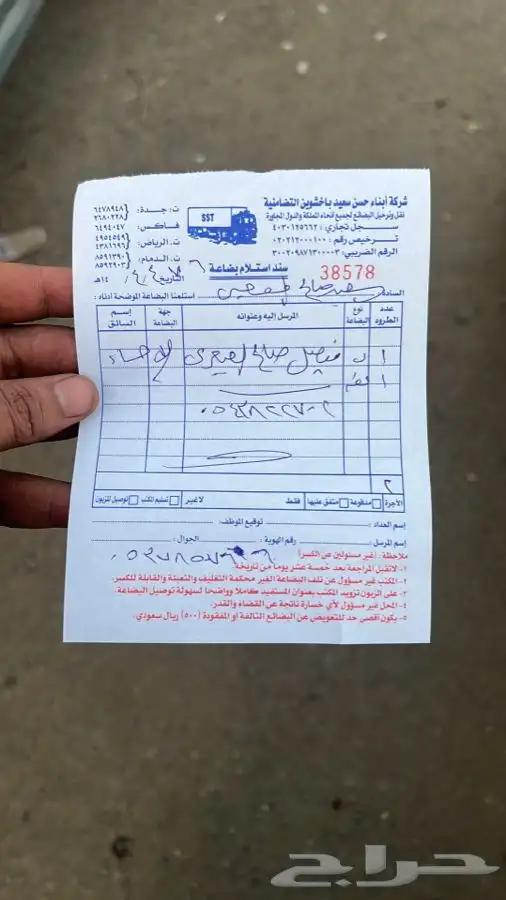 شركة أبناء حسن سعيد باخشوين التضامنية
نقل وترحيل البضائع لجميع أنحاء المملكة والدول المجاورة
سجل تجاري : ٤٠٣٠١٢٥٦٦٢
ترخيص رقم : ٠٢٠٢١٢٠٠٠١٠٠
الرقم الضريبي: ٣٠٠٢٠٩٨٧١٣٠٠٠٠٣
SST
ت: جدة: ٦٤٧٨٩٤٨
٢٦٨٠٢٢٨
فاكس: ٦٤٩٤٠٤٧
ت. الرياض: ٤٩٥٤٥٤٩
٤٣٨١٦٩٦
ت. الدمام: ٨٥٩١٣٩٠
٨٥٩٢٩٠٣
38578
سند استلام بضاعة
التاريخ ١٤هـ
السادة استلمنا البضاعة الموضحة أدناه :
عدد الطرود
نوع البضاعة
المرسل إليه وعنوانه
جهة البضاعة
إسم السائق
١ فيصل صالح الاحساء
١
٠٥٤٣٨٢٢٧٠٢
٢
الأجرة مدفوعة متفق عليها فقط لاغير تسليم المكتب توصيل للزبون
إسم العداد: توقيع الموظف:
إسم المرسل : رقم الهوية : الجوال:
ملاحظة : (غير مسئولين عن الكسر)
١- لاتقبل المراجعة بعد خمسة عشر يوماً من تاريخه.
٢- المكتب غير مسؤول عن تلف البضاعة الغير محكمة التغليف والتعبئة والقابلة للكسر.
٣- على الزبون تزويد المكتب بعنوان المستفيد كاملاً وواضحاً لسهولة توصيل البضاعة.
٤- المحل غير مسؤول لأي خسارة ناتجة عن القضاء والقدر.
٥- يكون أقصى حد للتعويض عن البضائع التالفة أو المفقودة (٥٠٠) ريال سعودي.
حراج